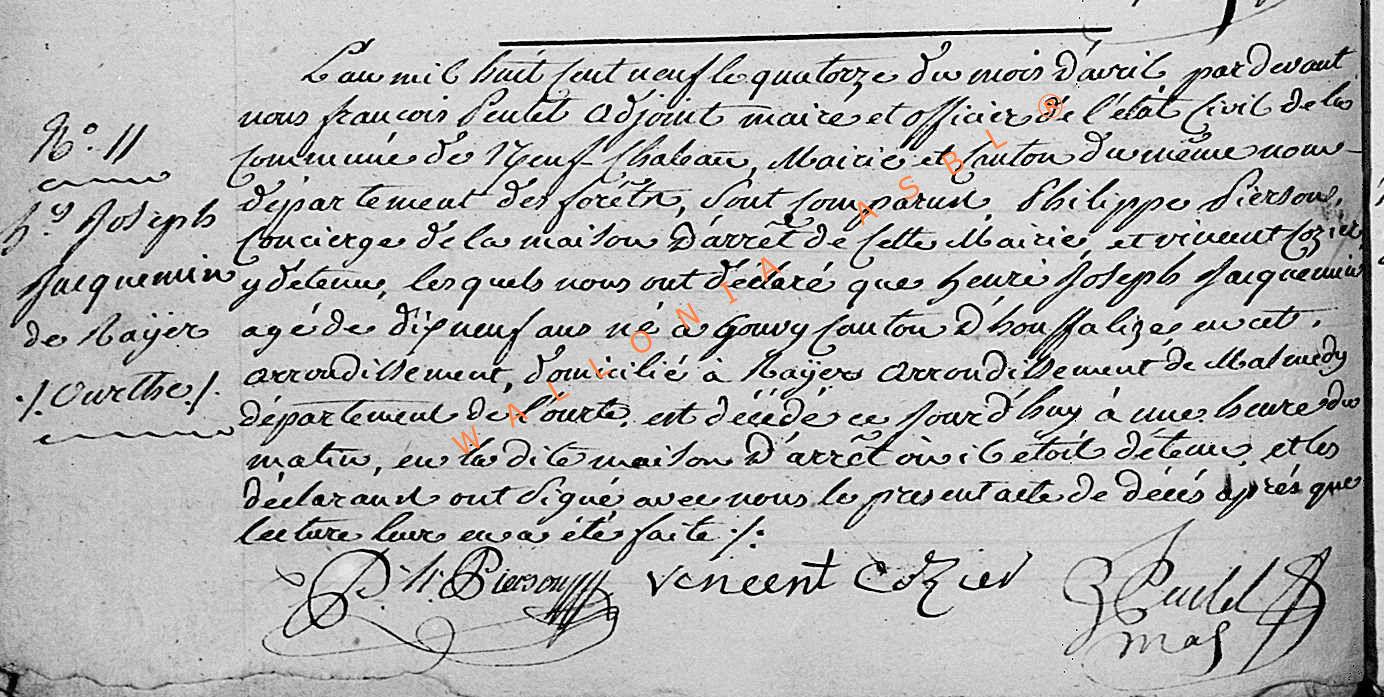 L'an mil huit cent neuf le quatorze du mois d'avril par devant
nous françois Peulet Adjoint maire et officier de l'état Civil de la
Commune de Neuf Chateau, Mairie et Canton du même nom
département des forêts, sont comparus Philippe Pierson,
Concierge de la maison d'arrêt de cette Mairie, et vincent Cozier,
y detenu, lesquels nous ont déclaré que henri Joseph Jacquemin
agé de dix neuf ans né à Gouvy Canton d'houffalize en cet
arrondissement, domicilié à Rayer Arrondissement de Malmedy
département de l'ourte, est décédé ce jourd'huy à une heure du
matin, en la dite maison d'arrêt où il étoit détenu, et les
déclarans ont signé avec nous le present acte de décés après que
lecture leur en a été faite ./.
N.° 11
h.i Joseph
Jacquemin
de Rayer
./. Ourthe ./.
P. h. Pierson
vencent Cozier
WALLONIA ASBL ®